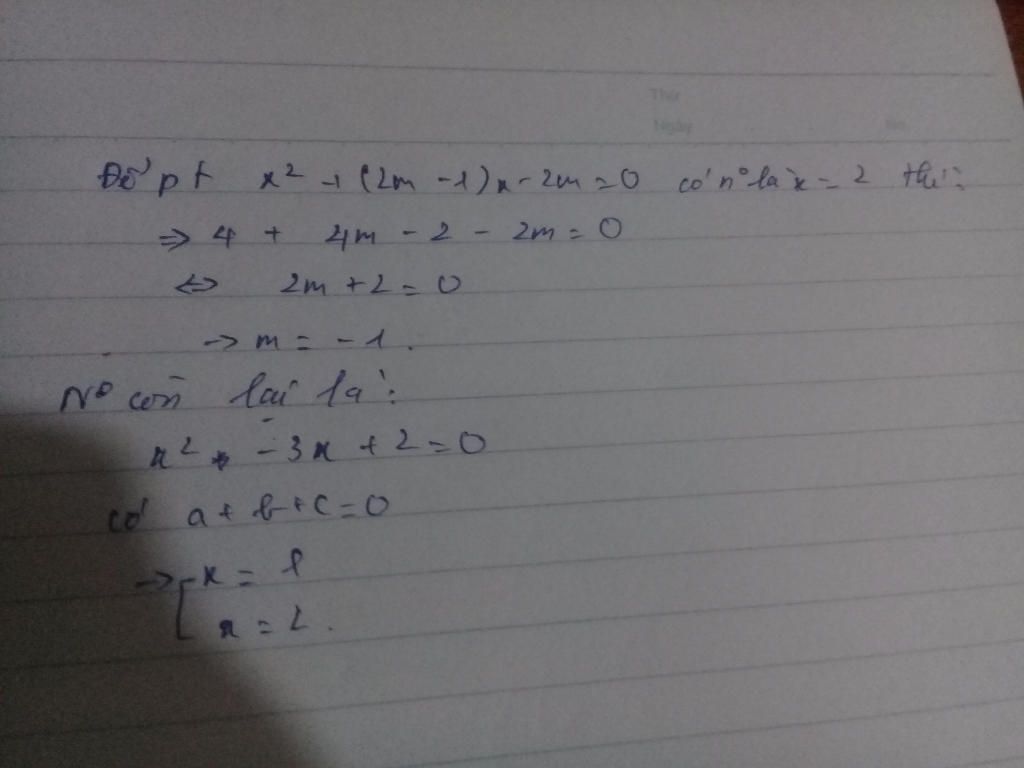 Thứ
Ngày
No.
Để pt x² + (2m - 1)x - 2m = 0 có n° là x = 2 thì:
=> 4 + 4m - 2 - 2m = 0
<=> 2m + 2 = 0
-> m = -1.
N° còn lại là:
x² - 3x + 2 = 0
có a + b + c = 0
-> [ x = 1
x = 2.